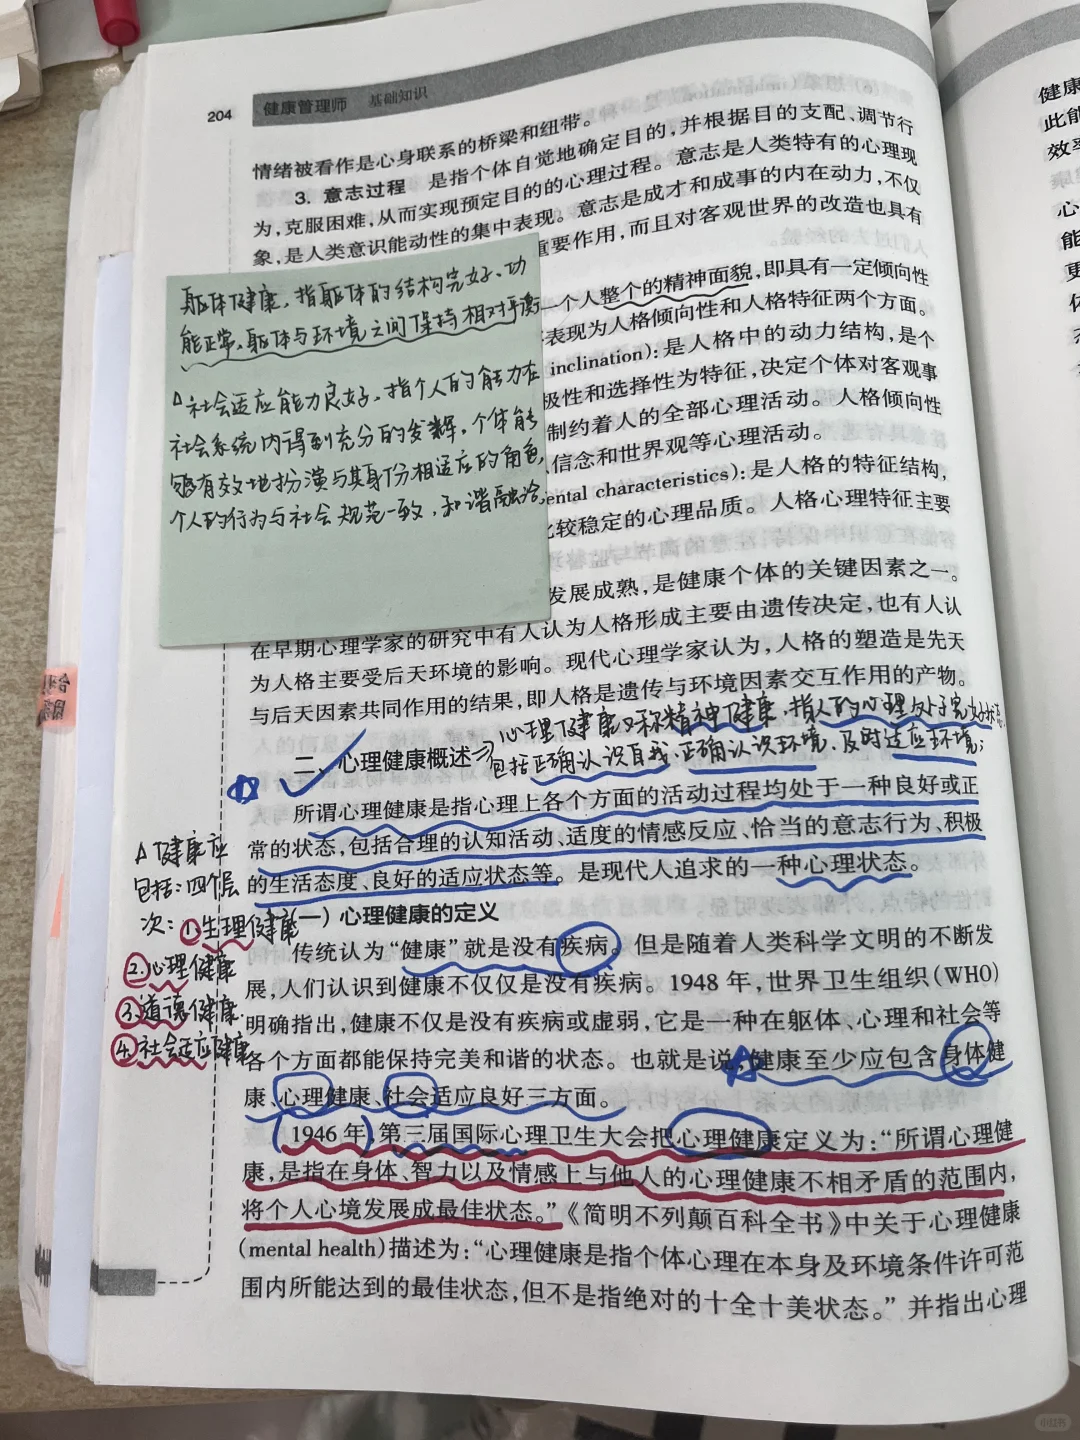 204 健康管理师 基础知识
情绪被看作是心身联系的桥梁和纽带。
3. 意志过程 是指个体自觉地确定目的,并根据目的支配、调节行
为,克服困难,从而实现预定目的的心理过程。意志是人类特有的心理现
象,是人类意识能动性的集中表现。意志是成才和成事的内在动力,不仅
重要作用,而且对客观世界的改造也具有
一个人整个的精神面貌,即具有一定倾向性
表现为人格倾向性和人格特征两个方面。
inclination):是人格中的动力结构,是个
极性和选择性为特征,决定个体对客观事
制约着人的全部心理活动。人格倾向性
信念和世界观等心理活动。
ental characteristics):是人格的特征结构,
比较稳定的心理品质。人格心理特征主要
发展成熟,是健康个体的关键因素之一。
躯体健康,指躯体的结构完好、功
能正常,躯体与环境之间保持相对平衡
△社会适应能力良好,指个人的能力在
社会系统内得到充分的发辉,个体能
够有效地扮演与其身份相适应的角色,
个人的行为与社会规范一致,和谐融洽
在早期心理学家的研究中有人认为人格形成主要由遗传决定,也有人认
为人格主要受后天环境的影响。现代心理学家认为,人格的塑造是先天
与后天因素共同作用的结果,即人格是遗传与环境因素交互作用的产物。
心理健康又称精神健康,指人的心理处于完好状态
包括正确认识自我、正确认识环境、及时适应环境;
二、心理健康概述
所谓心理健康是指心理上各个方面的活动过程均处于一种良好或正
常的状态,包括合理的认知活动、适度的情感反应、恰当的意志行为、积极
的生活态度、良好的适应状态等。是现代人追求的一种心理状态。
(一)心理健康的定义
传统认为“健康”就是没有疾病。但是随着人类科学文明的不断发
展,人们认识到健康不仅仅是没有疾病。1948 年,世界卫生组织(WHO)
明确指出,健康不仅是没有疾病或虚弱,它是一种在躯体、心理和社会等
各个方面都能保持完美和谐的状态。也就是说,健康至少应包含身体健
康、心理健康、社会适应良好三方面。
△健康应
包括:四个层
次:①生理健康
②心理健康
③道德健康
④社会适应健康
1946 年,第三届国际心理卫生大会把心理健康定义为:“所谓心理健
康,是指在身体、智力以及情感上与他人的心理健康不相矛盾的范围内,
将个人心境发展成最佳状态。”《简明不列颠百科全书》中关于心理健康
(mental health)描述为:“心理健康是指个体心理在本身及环境条件许可范
围内所能达到的最佳状态,但不是指绝对的十全十美状态。”并指出心理
健康
此能
效率
心
能
更
小红书